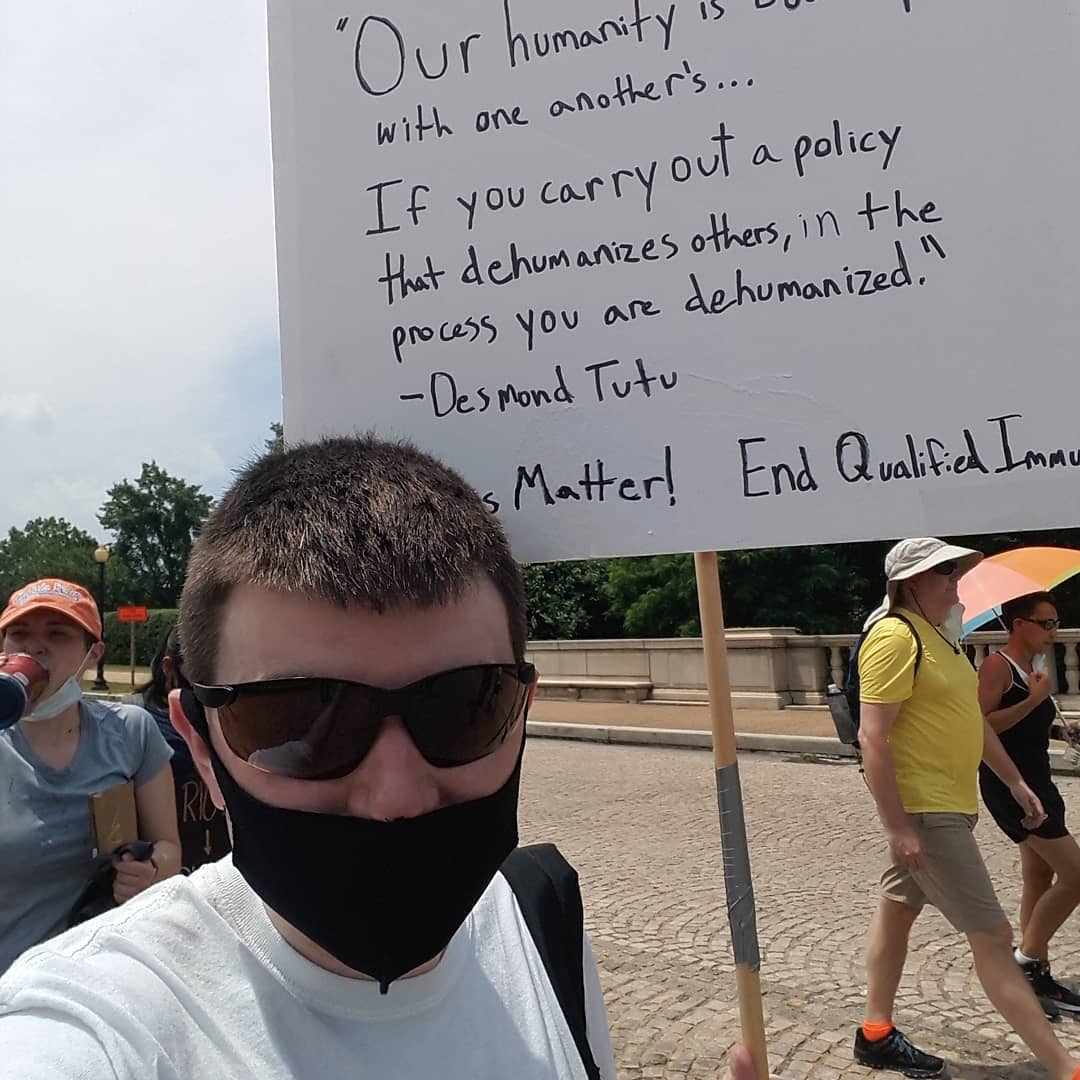 "Our humanity is
with one another's...
If you carry out a policy
that dehumanizes others, in the
process you are dehumanized."
-Desmond Tutu
Matter! End Qualified Immu